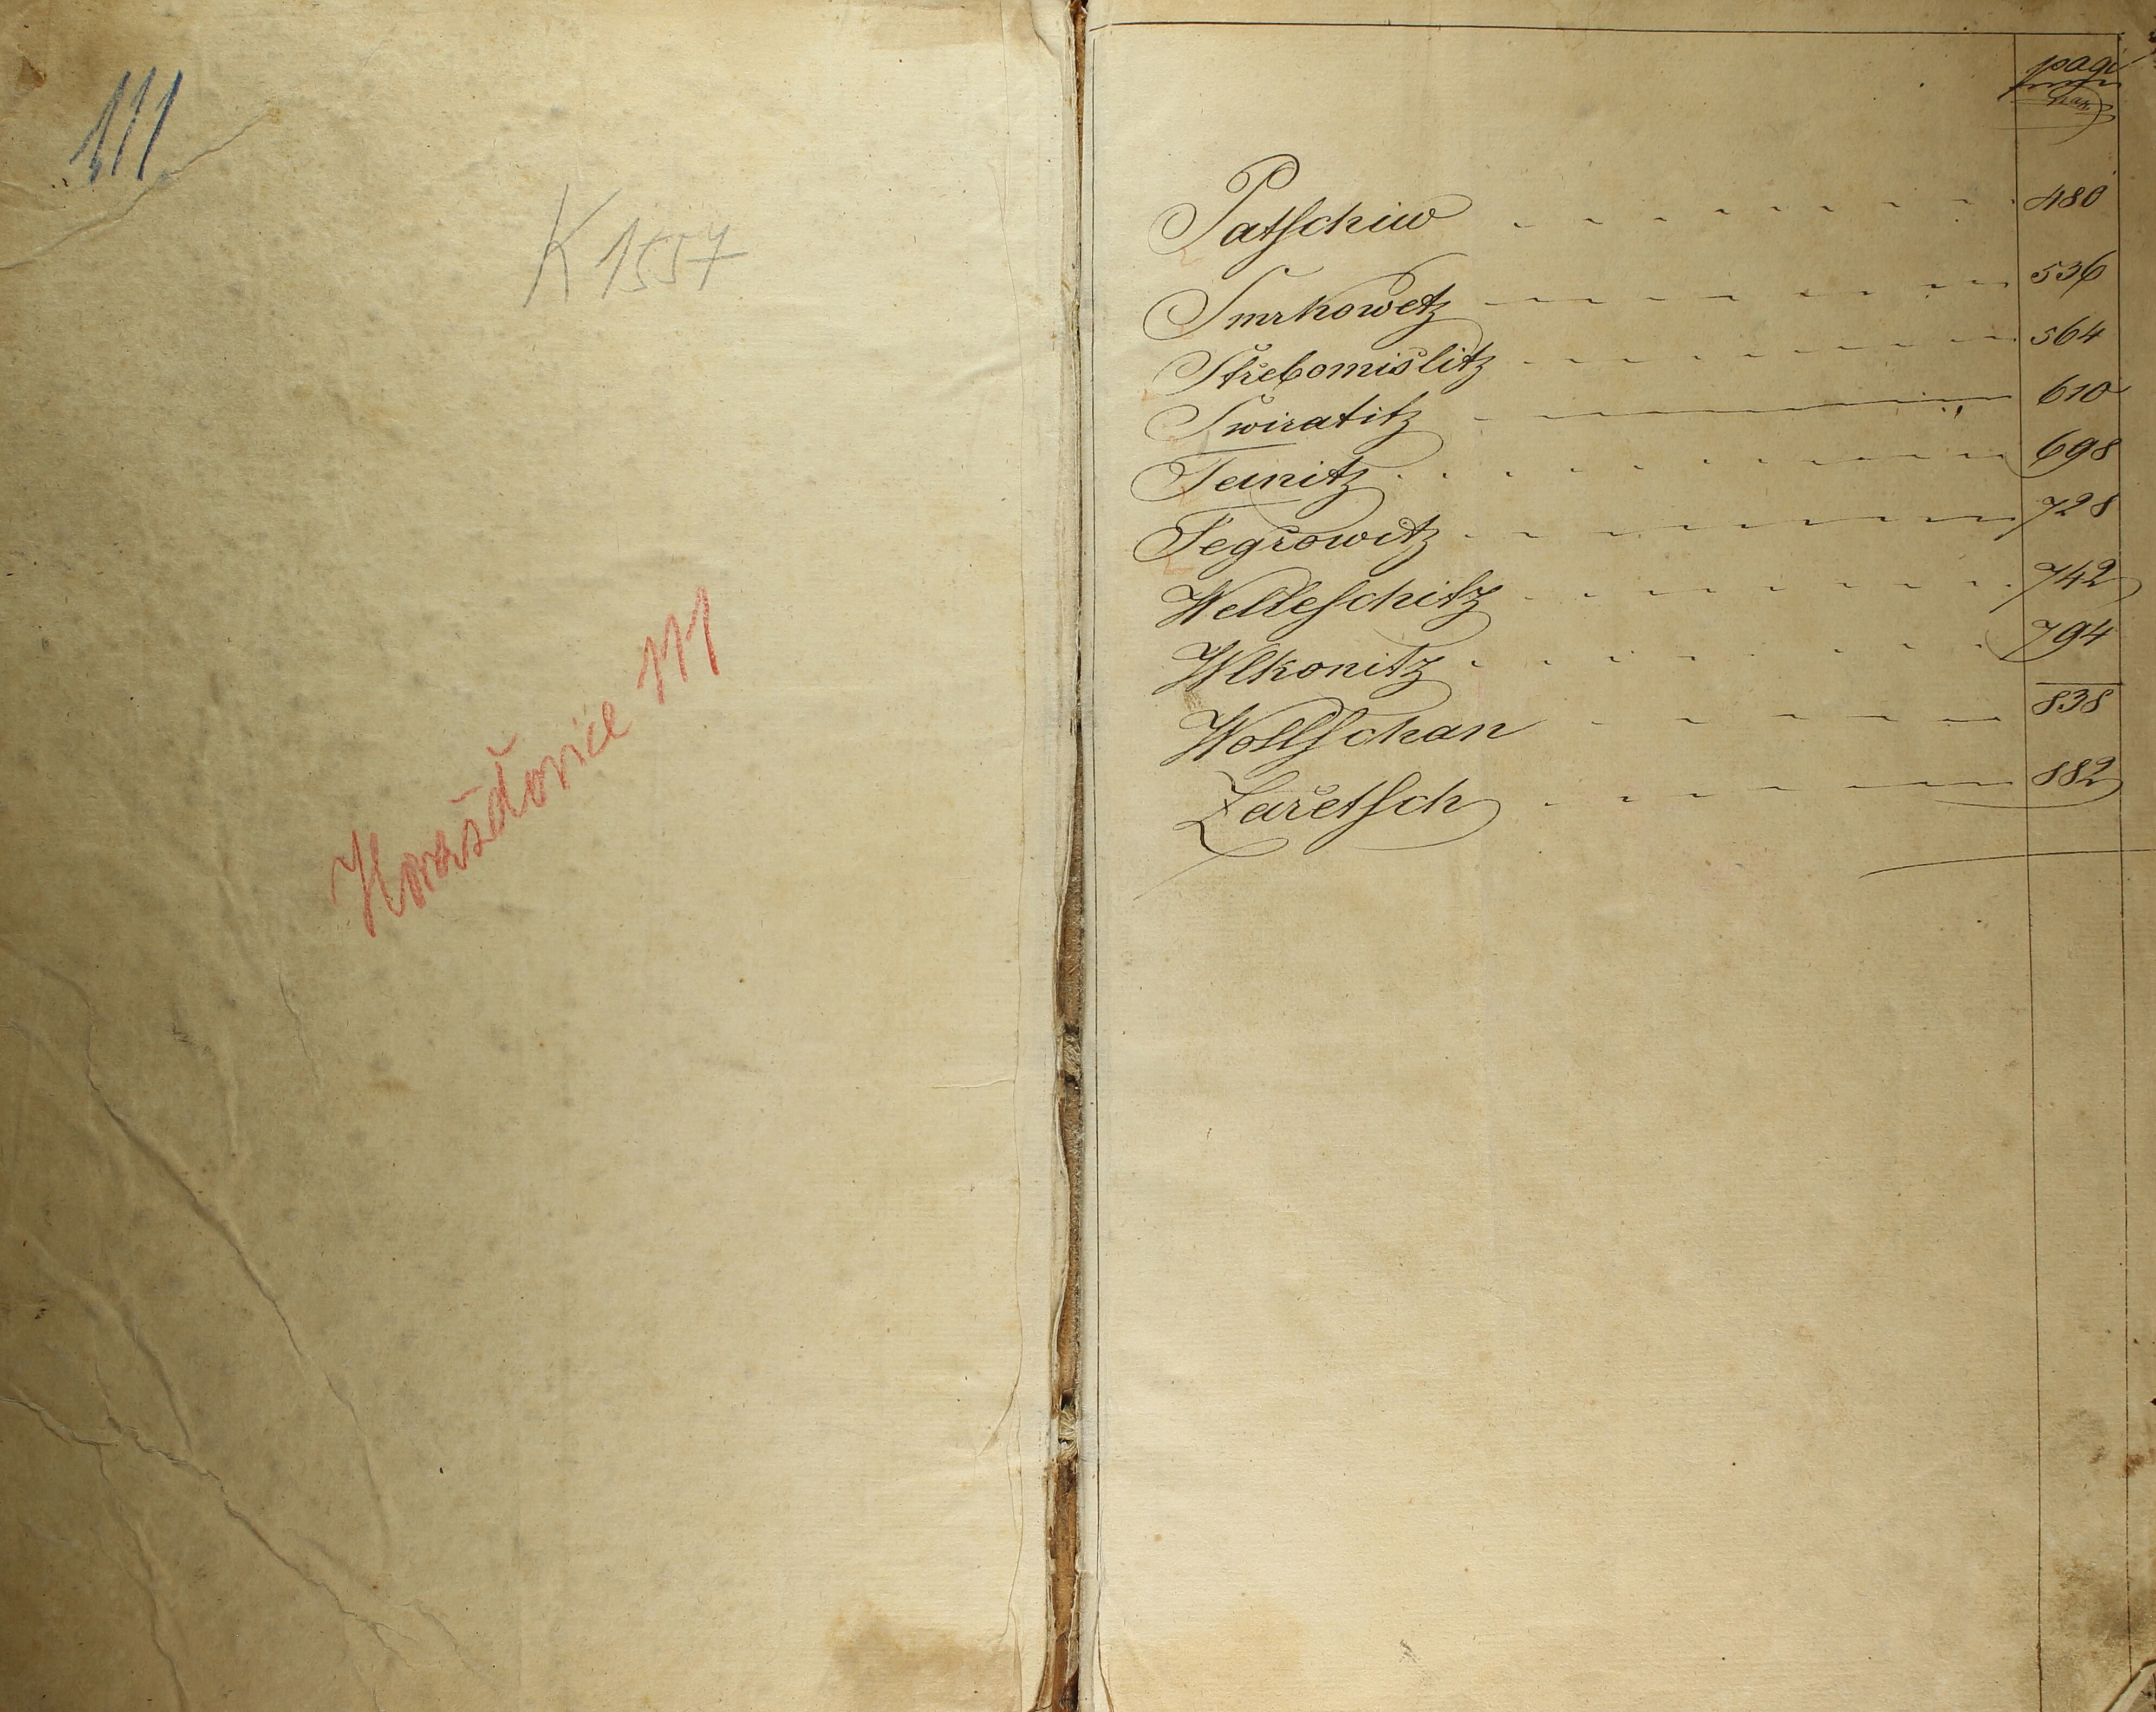 111
K 1557
Horažďovice 111
pagi
na
Patschiw 480
Smrkowetz 536
Střebomislitz 564
Swiratitz 610
Teinitz 698
Tegřowitz 728
Welleschitz 742
Wlkonitz 794
Wollschan 838
Zařetsch 882